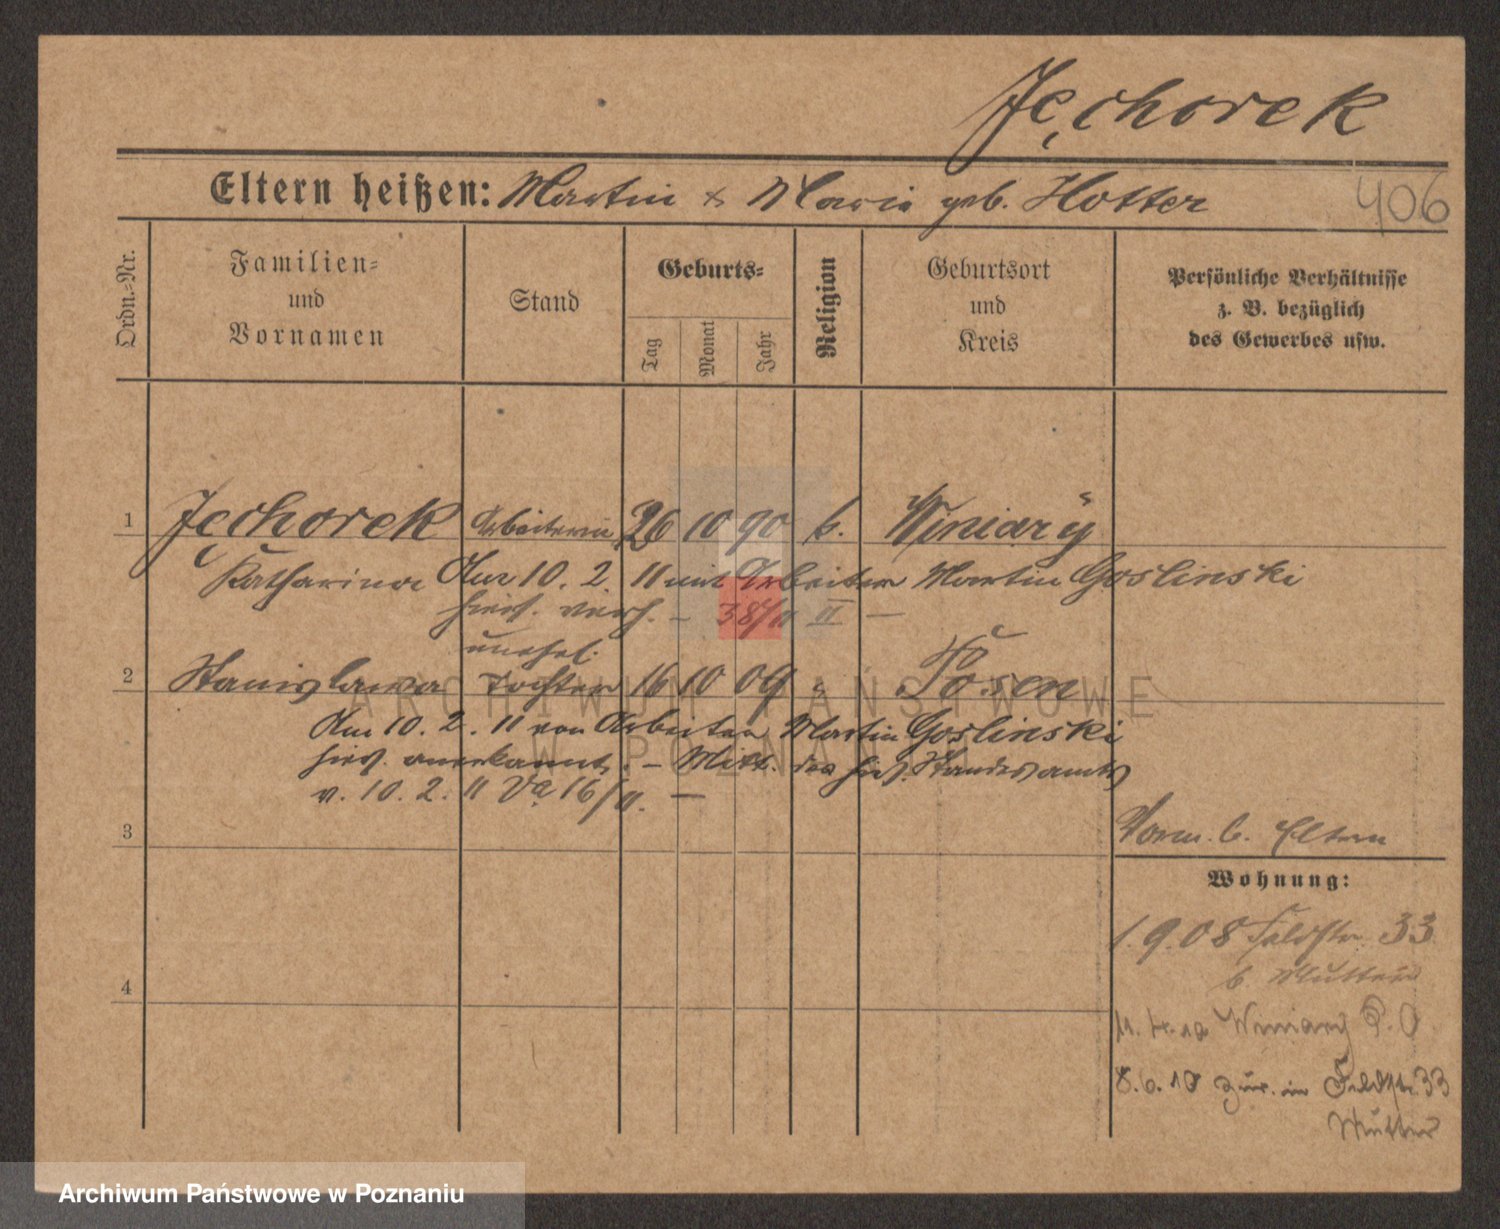 Jęchorek
Eltern heißen: Martin & Maria geb. Hotter
406
Ordn.-Nr.
Familien-
und
Vornamen
Stand
Geburts-
Tag
Monat
Jahr
Religion
Geburtsort
und
Kreis
Persönliche Verhältnisse
z. B. bezüglich
des Gewerbes usw.
1 Jęchorek Arbeiterin 26 10 90 k. Winiary
Katharina Am 10. 2. 11 mit Arbeiter Martin Goslinski
hies. verh. – 38/11 II –
unehel.
2 Stanislawa Tochter 16 10 09 " Posen
Am 10. 2. 11 von Arbeiter Martin Goslinski
hies. anerkannt. – Mitt. des hies. Standesamts
v. 10. 2. 11 Va 16/11. –
3
Vorm. b. Eltern
Wohnung:
1.9.08 Feldstr. 33
b. Mutter
4
Winiary P. O
8.6.10 zur. in Feldstr. 33
Mutter
ARCHIWUM PAŃSTWOWE
W POZNANIU
Archiwum Państwowe w Poznaniu